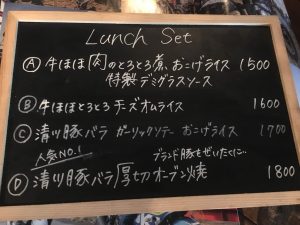 Lunch Set
Ⓐ 牛ほほ肉のとろとろ煮、おこげライス 1500
特製デミグラスソース
Ⓑ 牛ほほとろとろ チーズオムライス 1600
Ⓒ 清川豚バラ ガーリックソテー おこげライス 1700
人気NO.1 ブランド豚をぜいたくに…
Ⓓ 清川豚バラ厚切オーブン焼 1800